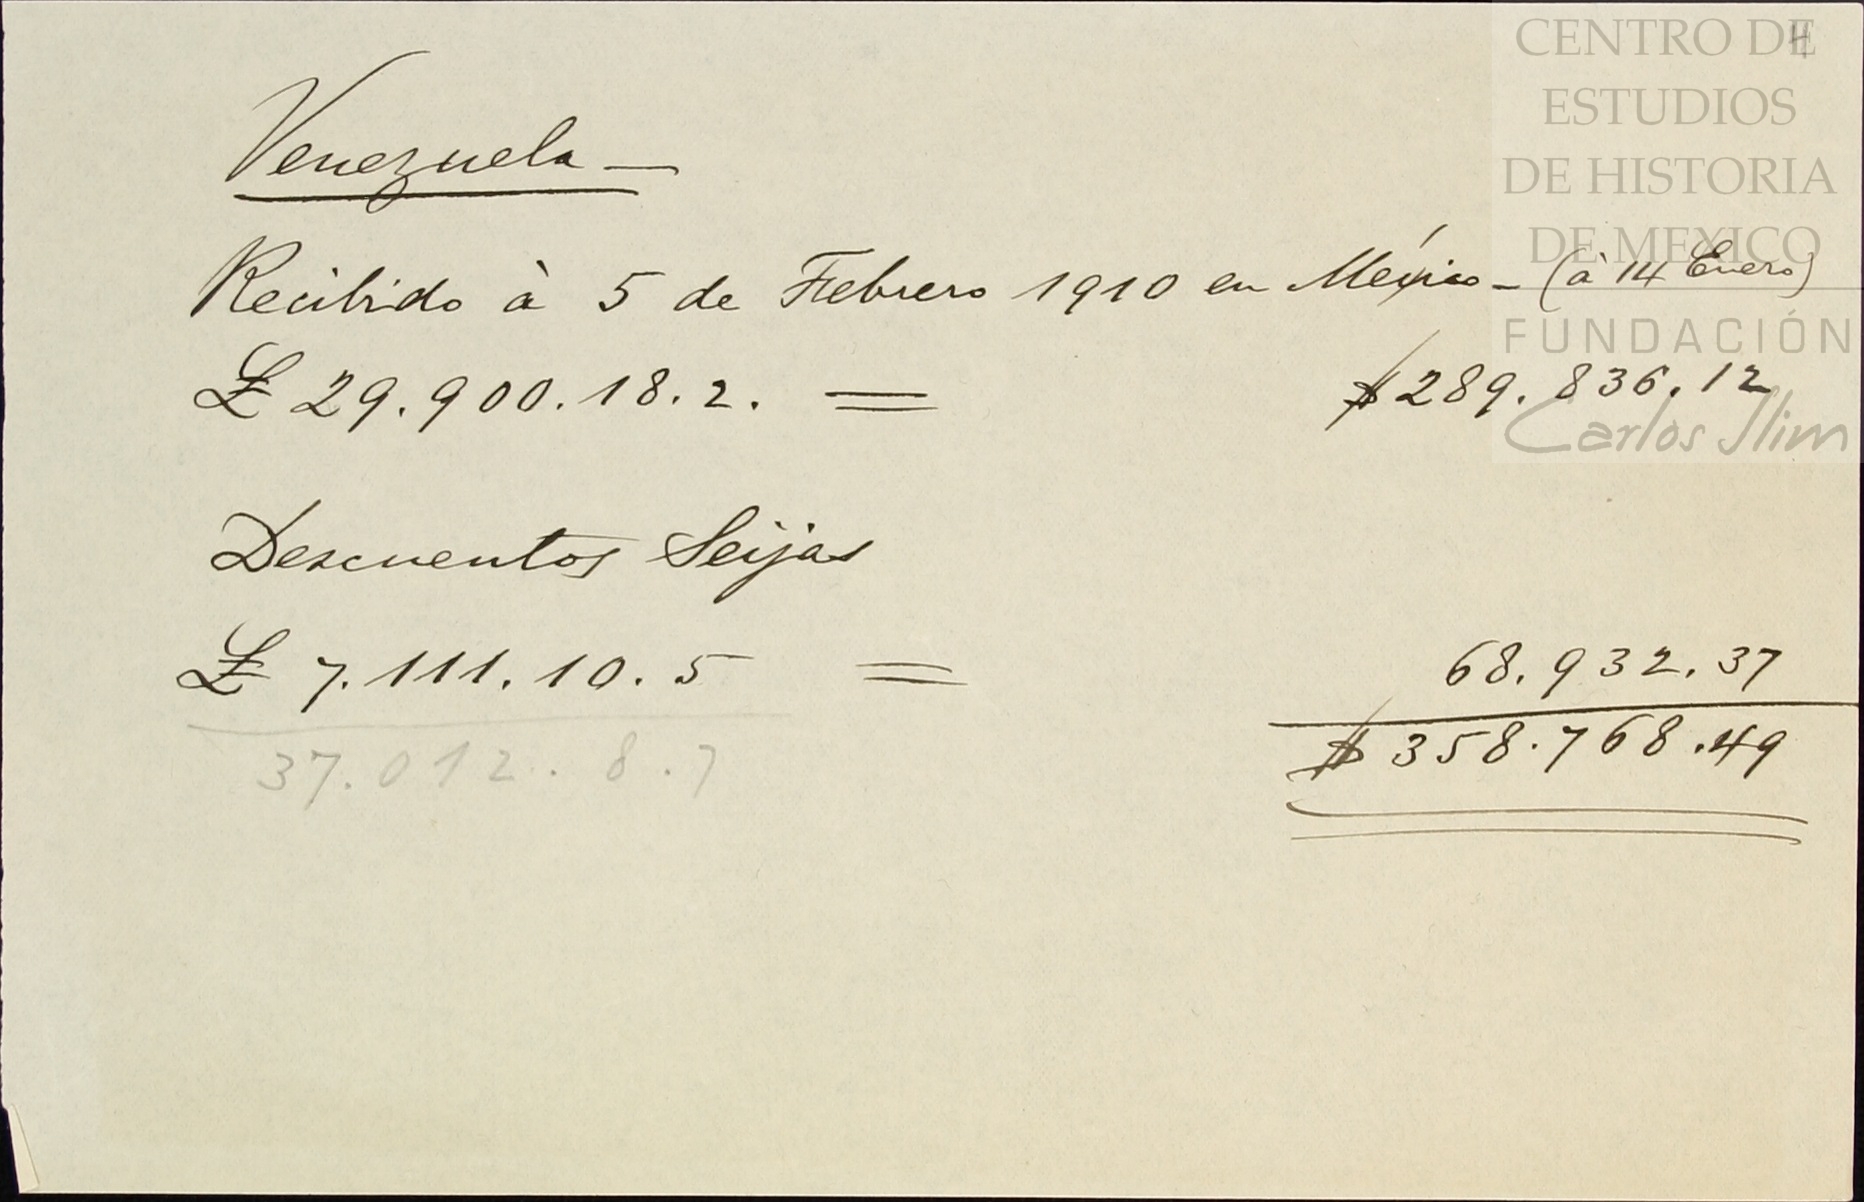 CENTRO DE
ESTUDIOS
DE HISTORIA
DE MEXICO
FUNDACIÓN
Carlos Slim
Venezuela —
Recibido à 5 de Febrero 1910 en México - (à 14 Enero)
£ 29.900.18.2. = $ 289.836.12
Descuentos Seijas
£ 7.111.10.5 = 68.932.37
37.012.8.7 $ 358.768.49